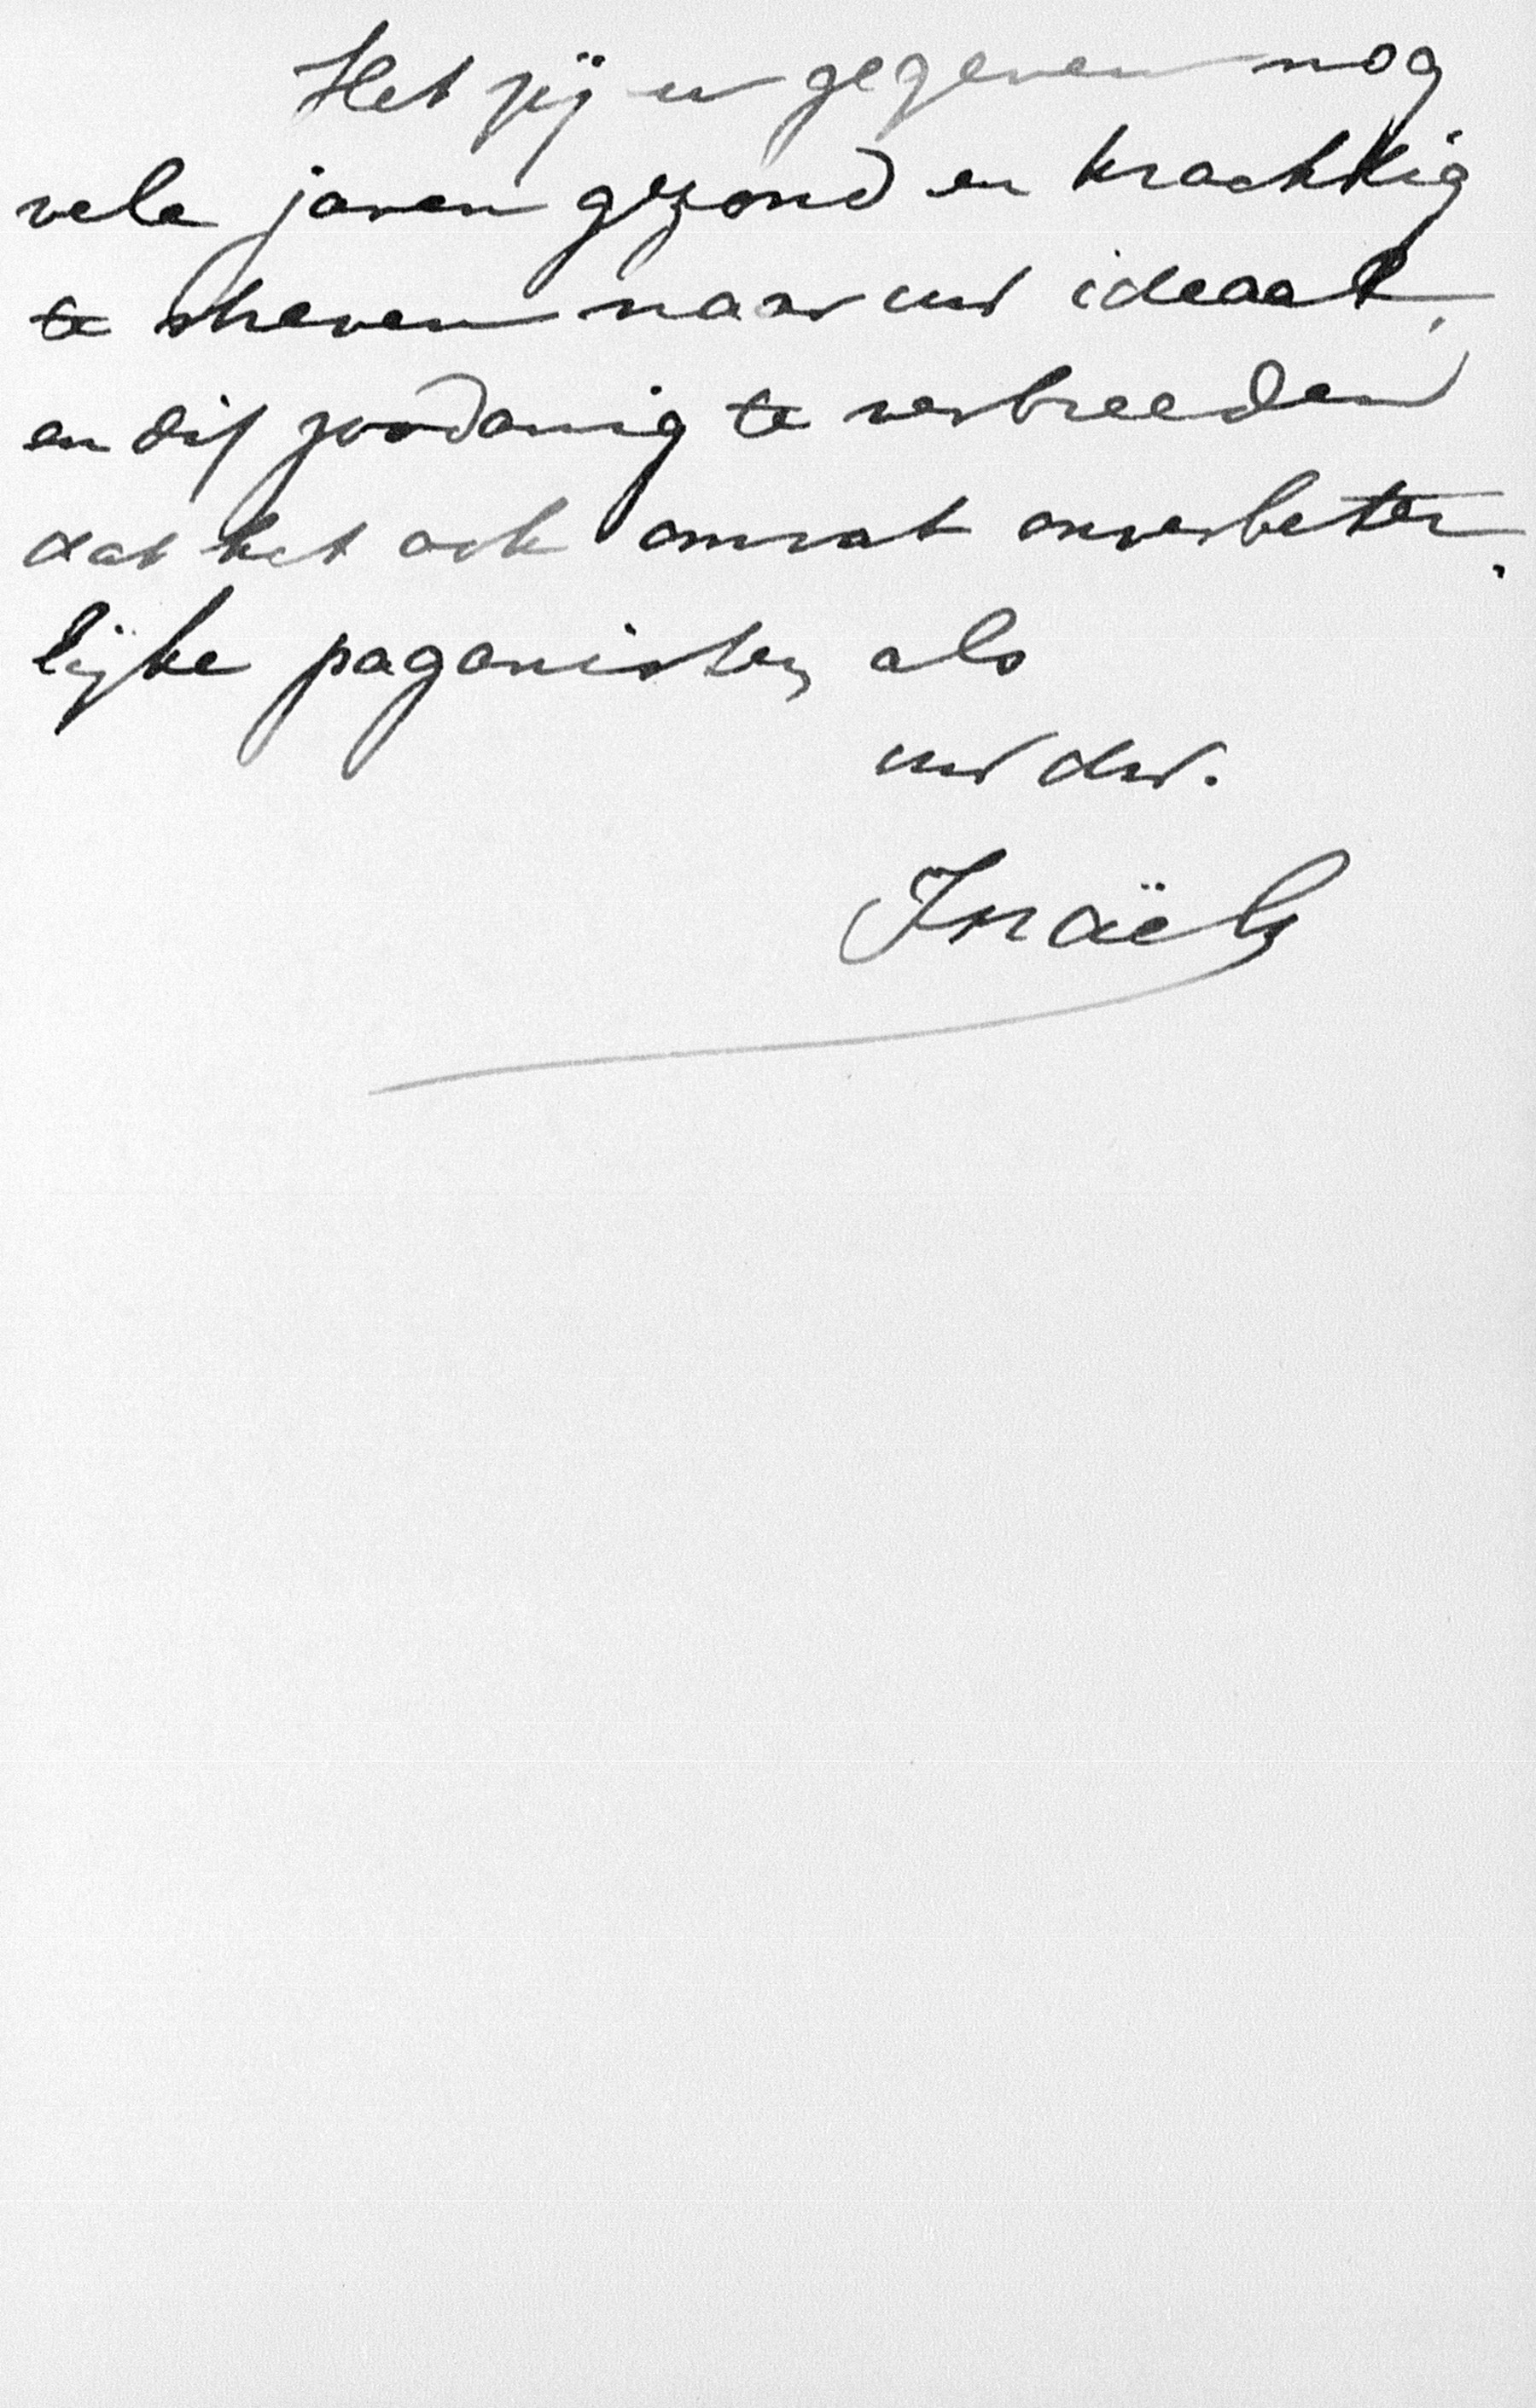 Het zij u gegeven nog
vele jaren gezond en krachtig
te streven naar uw ideaal,
en dit zoodanig te verbreeden
dat het ook omvat onverbeter-
lijke paganisten als
uw dw.
Israëls